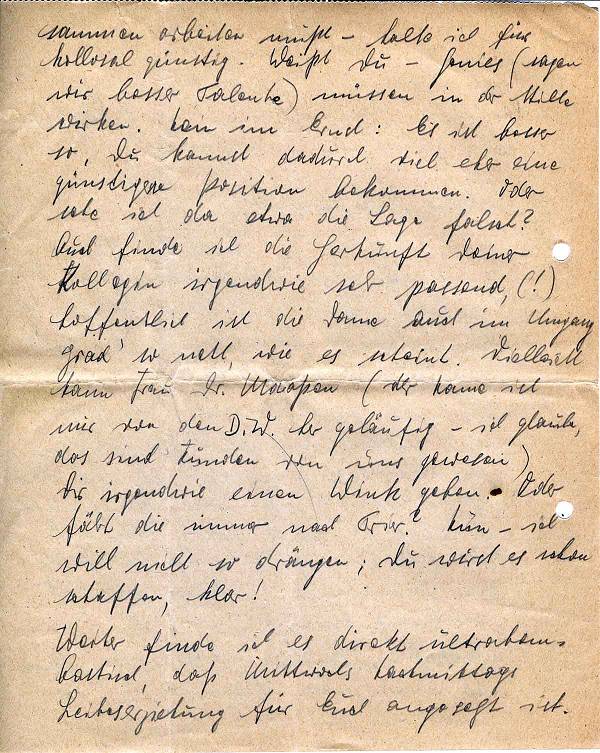 sammen arbeiten mußt – halte ich für
kollosal günstig. Weißt Du – Genies (sagen
wir besser Talente) müssen in der Stille
wirken. Nun im Ernst: Es ist besser
so, Du kannst dadurch viel eher eine
günstigere Position bekommen. Oder
sehe ich da etwa die Lage falsch?
Auch finde ich die Herkunft Deiner
Kollegin irgendwie sehr passend, (!)
hoffentlich ist die Dame auch im Umgang
grad' so nett, wie es scheint. Vielleicht
kann Frau Dr. Maaßen (der Name ist
mir von den D.W. her geläufig – ich glaube,
das sind Kunden von uns gewesen)
Dir irgendwie einen Wink geben. Oder
fährt die immer nach Trier? Nun – ich
will nicht so drängen; Du wirst es schon
schaffen, klar!
Weiter finde ich es direkt ultrabom=
bastisch, daß Mittwochs Nachmittags
Leibeserziehung für Euch angesagt ist.